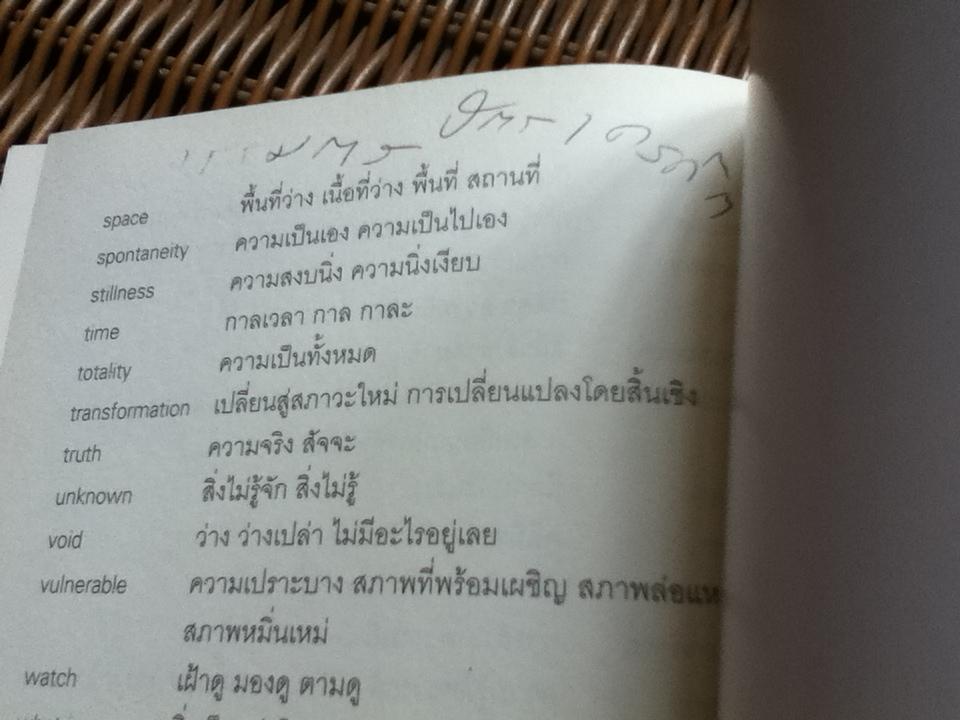 space พื้นที่ว่าง เนื้อที่ว่าง พื้นที่ สถานที่
spontaneity ความเป็นเอง ความเป็นไปเอง
stillness ความสงบนิ่ง ความนิ่งเงียบ
time กาลเวลา กาล กาละ
totality ความเป็นทั้งหมด
transformation เปลี่ยนสู่สภาวะใหม่ การเปลี่ยนแปลงโดยสิ้นเชิง
truth ความจริง สัจจะ
unknown สิ่งไม่รู้จัก สิ่งไม่รู้
void ว่าง ว่างเปล่า ไม่มีอะไรอยู่เลย
vulnerable ความเปราะบาง สภาพที่พร้อมเผชิญ สภาพล่อแห
สภาพหมิ่นเหม่
watch เฝ้าดู มองดู ตามดู